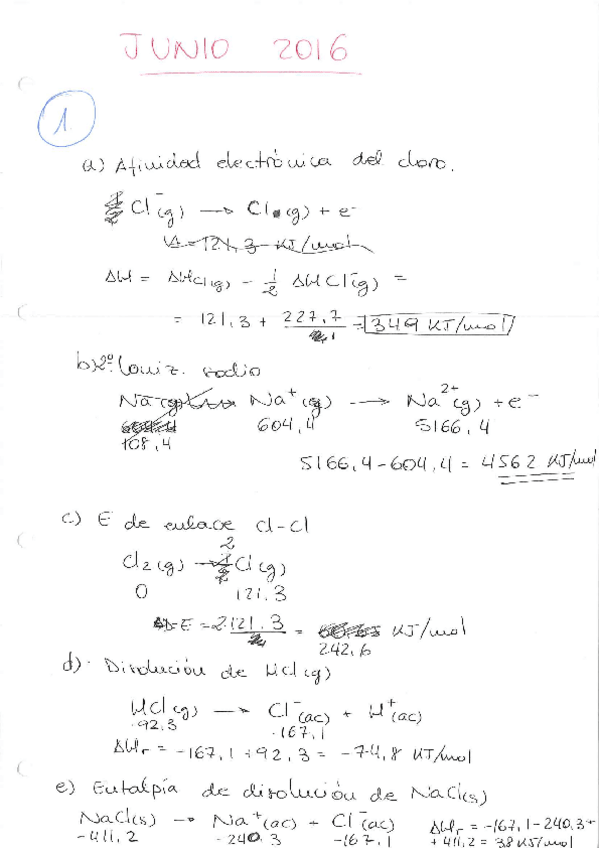 JUNIO 2016
1
a) Afinidad electrónica del cloro.
Cl⁻(g) → Cl(g) + e⁻
121,3 KJ/mol
ΔH = ΔHCl(g) - 1/2 ΔHCl⁻(g) =
= 121.3 + 227,7 = 349 KJ/mol
b) 2º Ioniz. sodio
Na⁺(g) → Na²⁺(g) + e⁻
108,4 604,4 5166,4
5166,4-604,4 = 4562 KJ/mol
c) E de enlace Cl-Cl
Cl₂(g) → 2 Cl(g)
0 121.3
E = 2·121.3 = 242,6 KJ/mol
d) Disolución de HCl(g)
HCl(g) → Cl⁻(ac) + H⁺(ac)
-92,3 -167,1
ΔHr = -167,1 + 92,3 = -74,8 KJ/mol
e) Entalpía de disolución de NaCl(s)
NaCl(s) → Na⁺(ac) + Cl⁻(ac) ΔHr = -167,1-240,3+
-411,2 -240.3 -167,1 +411,2 = 3,8 KJ/mol